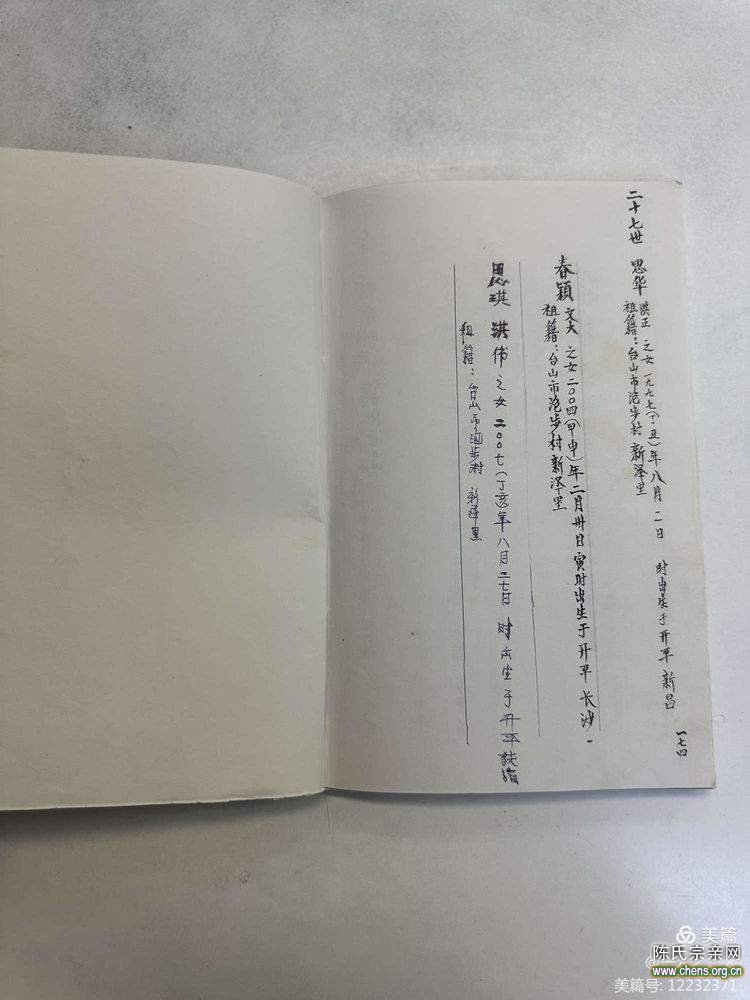 二十七世 思华 洪正 之女一九九七(丁丑)年八月二日 时出生于开平新昌
祖籍:台山市沱步村新泽里
一七四
春颖 文大 之女二〇〇四(甲申)年二月卅日寅时出生于开平长沙
祖籍:台山市沱步村新泽里
思琪 洪伟之女二〇〇七(丁亥年八月二七日 时出生于开平
祖籍:台山市 步村 新泽里
美篇
陈氏宗亲网
www.chens.org.cn
美篇号: 12232371